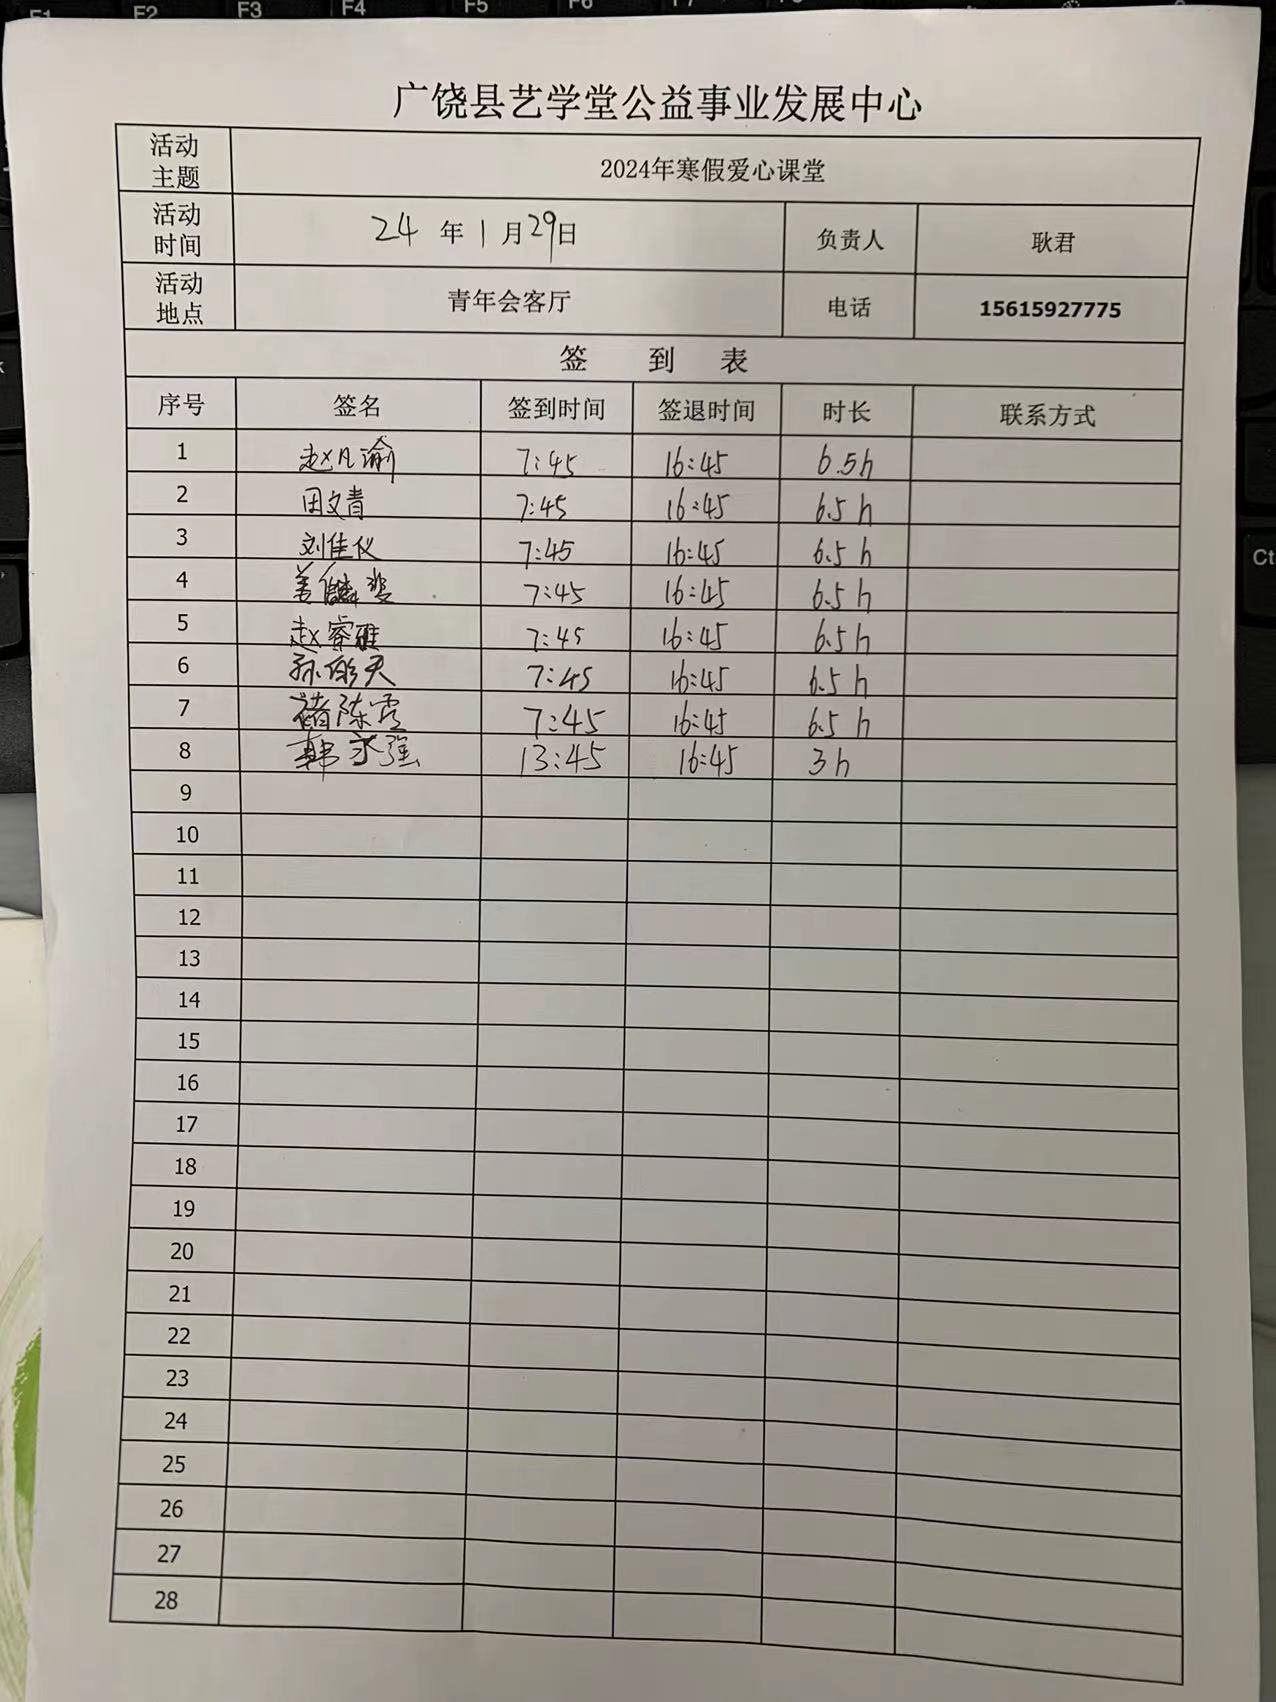 F1 F2 F3 F4 F5 F6 F7
广饶县艺学堂公益事业发展中心
活动主题 2024年寒假爱心课堂
活动时间 24年1月29日 负责人 耿君
活动地点 青年会客厅 电话 15615927775
签到表
序号 签名 签到时间 签退时间 时长 联系方式
1 赵凡谕 7:45 16:45 6.5h
2 田文青 7:45 16:45 6.5h
3 刘佳仪 7:45 16:45 6.5h
4 7:45 16:45 6.5h
5 赵睿雅 7:45 16:45 6.5h
6 7:45 16:45 6.5h
7 褚陈雪 7:45 16:45 6.5h
8 韩永强 13:45 16:45 3h
9
10
11
12
13
14
15
16
17
18
19
20
21
22
23
24
25
26
27
28
Ct